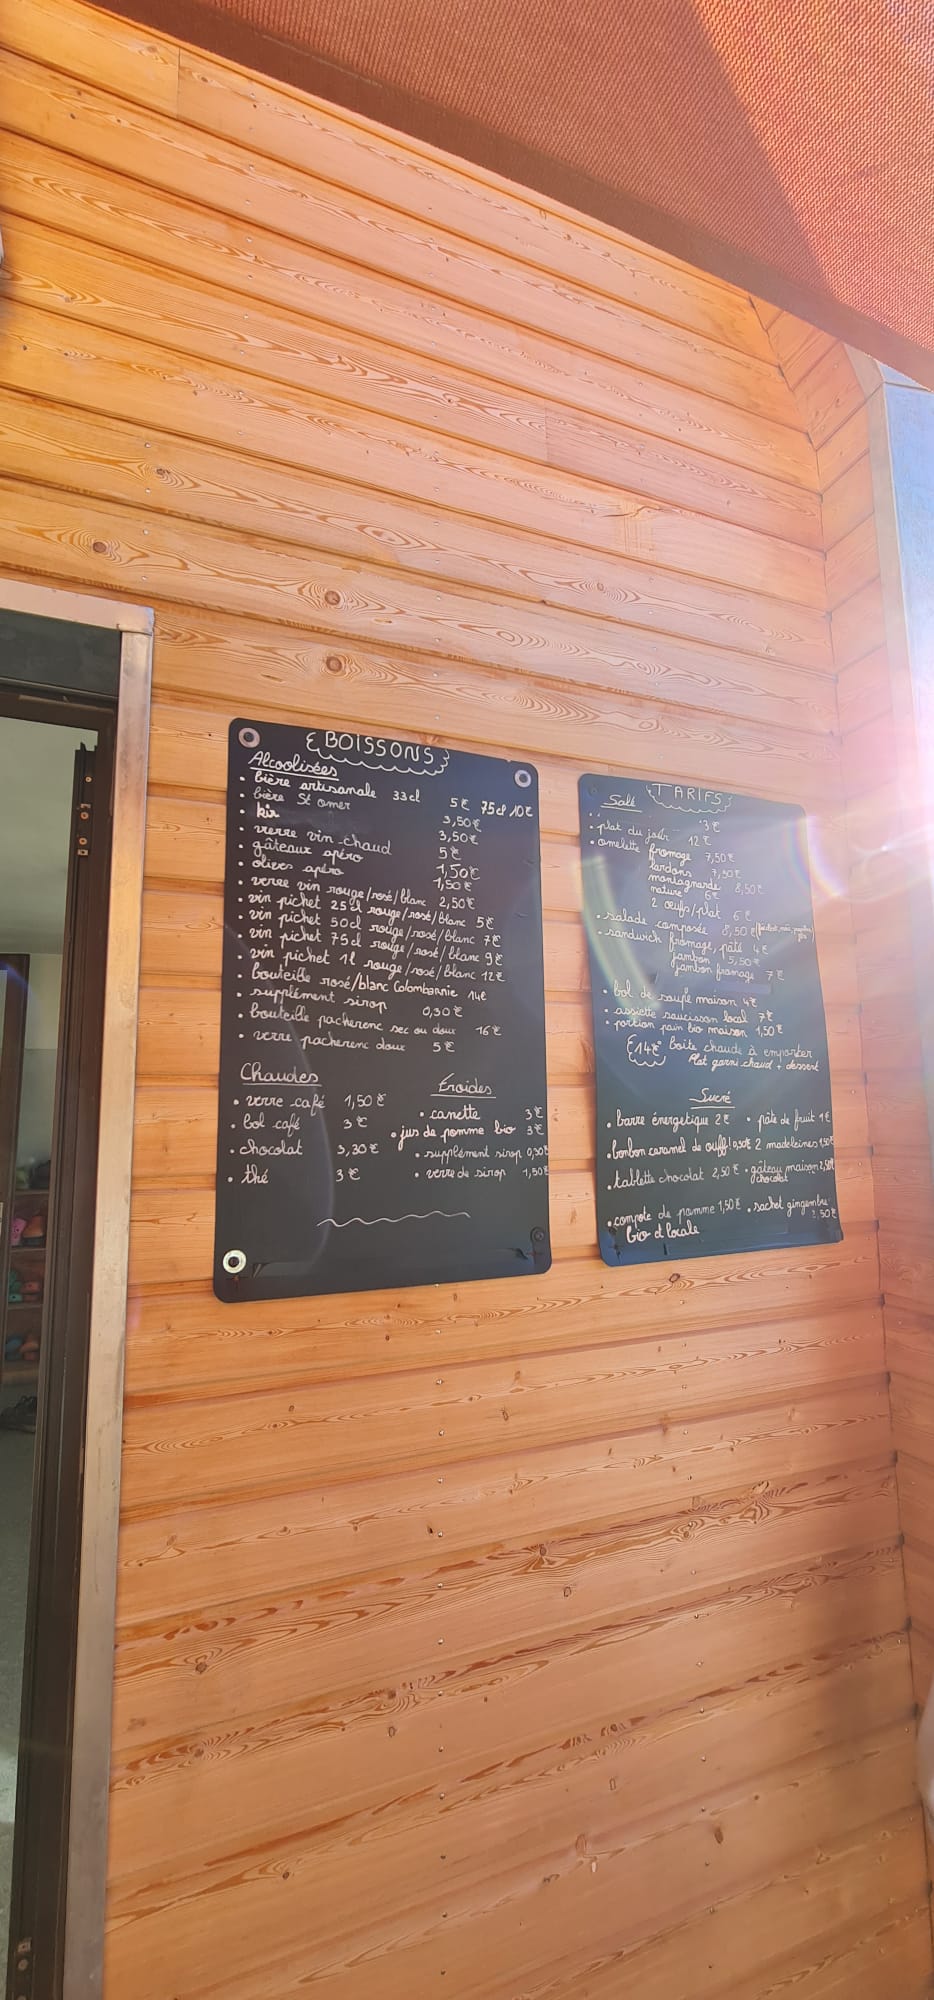 BOISSONS
Alcoolisées
• bière artisanale 33cl 5€ 75cl 10€
• bière St omer 3,50€
• kir 3,50€
• verre vin chaud 5€
• gâteaux apéro 1,50€
• olives apéro 1,50€
• verre vin rouge/rosé/blanc 2,50€
• vin pichet 25cl rouge/rosé/blanc 5€
• vin pichet 50cl rouge/rosé/blanc 7€
• vin pichet 75cl rouge/rosé/blanc 9€
• vin pichet 1l rouge/rosé/blanc 12€
• bouteille rosé/blanc Colombannie 14€
• supplément sirop 0,30€
• bouteille pacherenc sec ou doux 16€
• verre pacherenc doux 5€
Chaudes
• verre café 1,50€
• bol café 3€
• chocolat 3,30€
• thé 3€
Froides
• canette 3€
• jus de pomme bio 3€
• supplément sirop 0,30€
• verre de sirop 1,50€
TARIFS
Salé
3€
• plat du jour 12€
• omelette fromage 7,50€
lardons 7,50€
montagnarde 8,50€
nature 6€
2 œufs/plat 6€
• salade composée 8,50€
• sandwich fromage, pâté 4€
jambon 5,50€
jambon fromage 7€
• bol de soupe maison 4€
• assiette saucisson local 7€
• portion pain bio maison 1,50€
14€ boite chaude à emporter
Plat garni chaud + dessert
Sucré
• barre énergetique 2€ • pâte de fruit 1€
• bonbon caramel de ouff! 0,50€ 2 madeleines 1,50€
• tablette chocolat 2,50€ • gâteau maison 2,50€
chocolat
• compote de pomme 1,50€ • sachet gingembre
bio et locale 2,50€